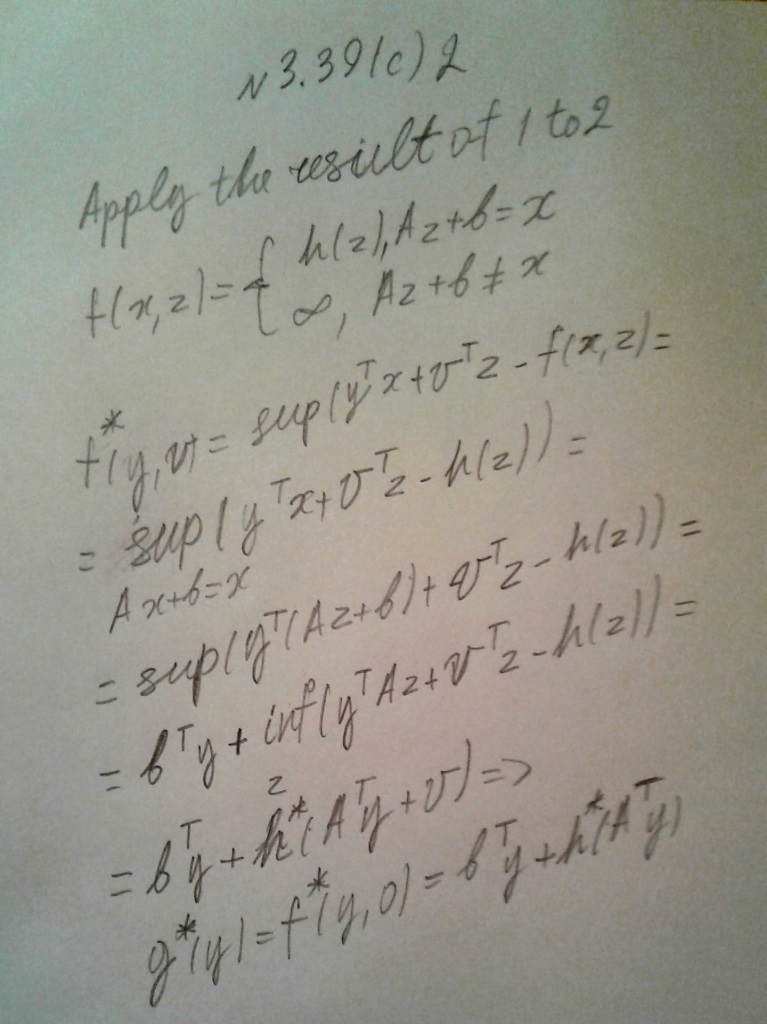 N 3.39(c) 2
Apply the result of 1 to 2
f(x,z) = { h(z), Az+b=x
∞, Az+b≠x
f*(y,v) = sup(yᵀx+vᵀz - f(x,z) =
= sup(yᵀx+vᵀz - h(z)) =
Ax+b=x
= sup(yᵀ(Az+b)+vᵀz - h(z)) =
= bᵀy + inf(yᵀAz+vᵀz - h(z)) =
z
= bᵀy + h*(Aᵀy+v) =>
g*(y) = f*(y,0) = bᵀy + h*(Aᵀy)